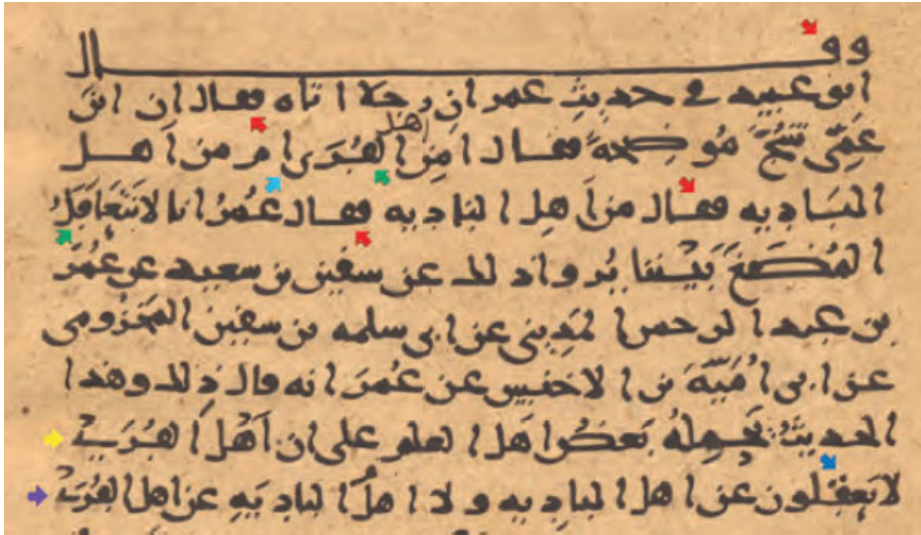 وقال
ابو عبيد في حديث عمر ان رجلا اتاه فقال ان ابن
عَمِّي شُجَّ مُوضِحةً فقال امِن اهل القُرَى ام من اهل
البَادِيه فقال من اَهل البادِيه فقال عُمَرُ انا لا نَتَعَاقَلُ
المُضَغَ بَيْننا يُروا ذلك عن سفين بن سعيد عن عُمَرَ
بن عَبد الرحمن المَدِيني عن ابي سلمه بن سفين المخزُومي
عن ابي اُمَيَّهَ بن الاخنس عن عُمَرَ انه قال ذلك وهذا
الحديثُ يَحمِلُهُ بَعضُ اهل العلم على ان اَهْلَ القُرَى
لا يَعقلُون عن اهل البادِيه ولا اهلُ البادِيَهِ عن اهل القُرَى